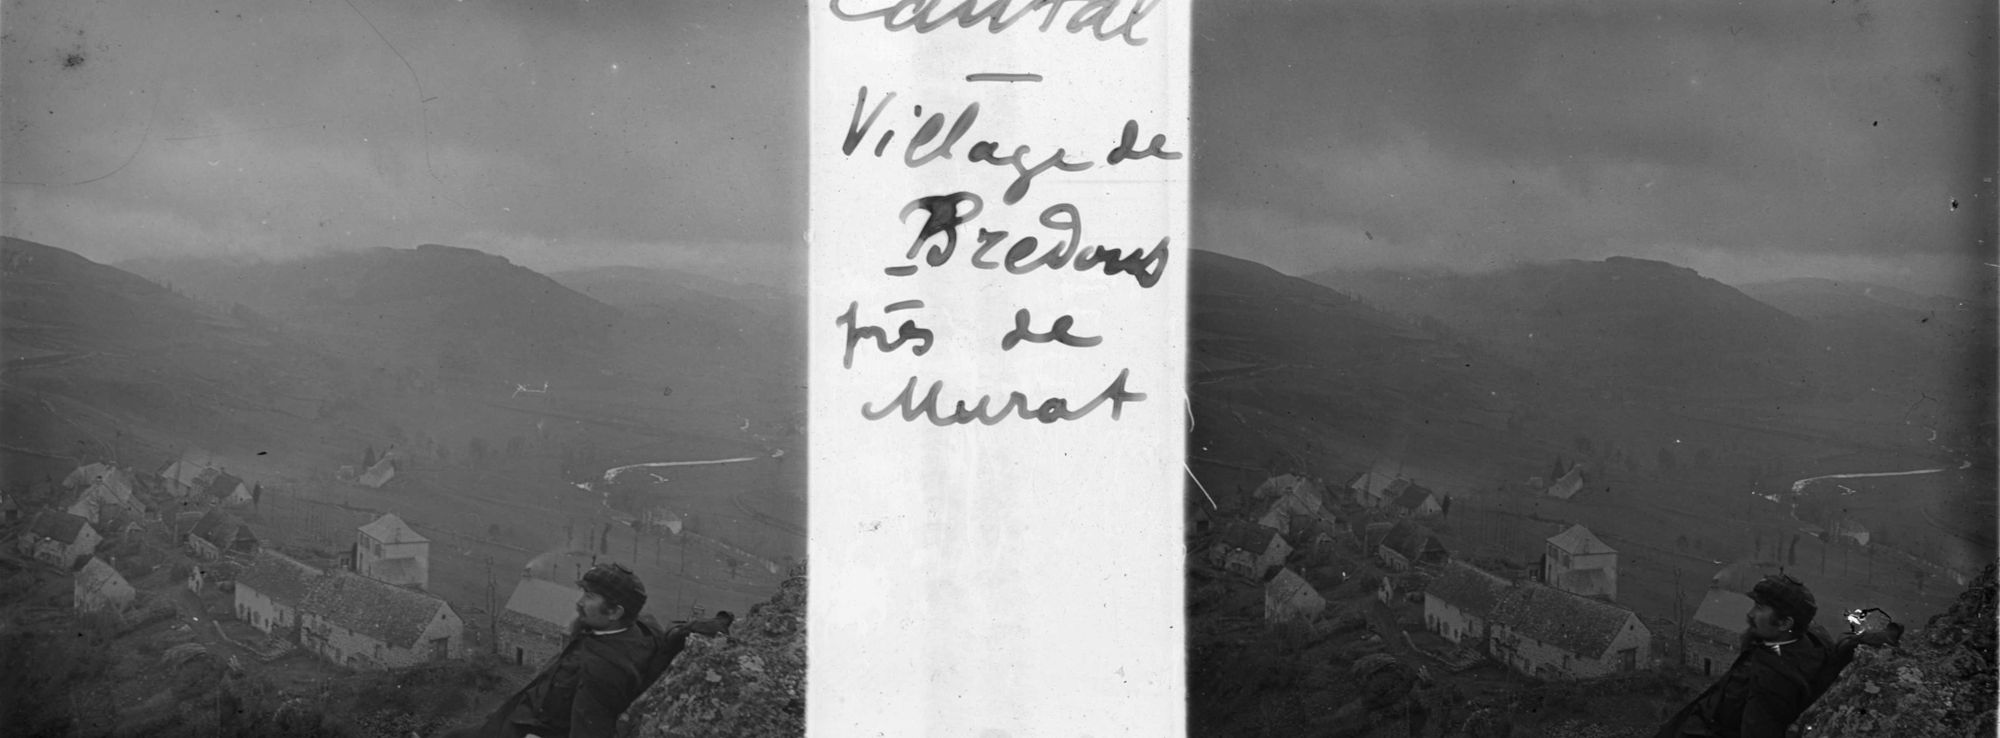 Cantal
—
Village de
Bredons
près de
Murat